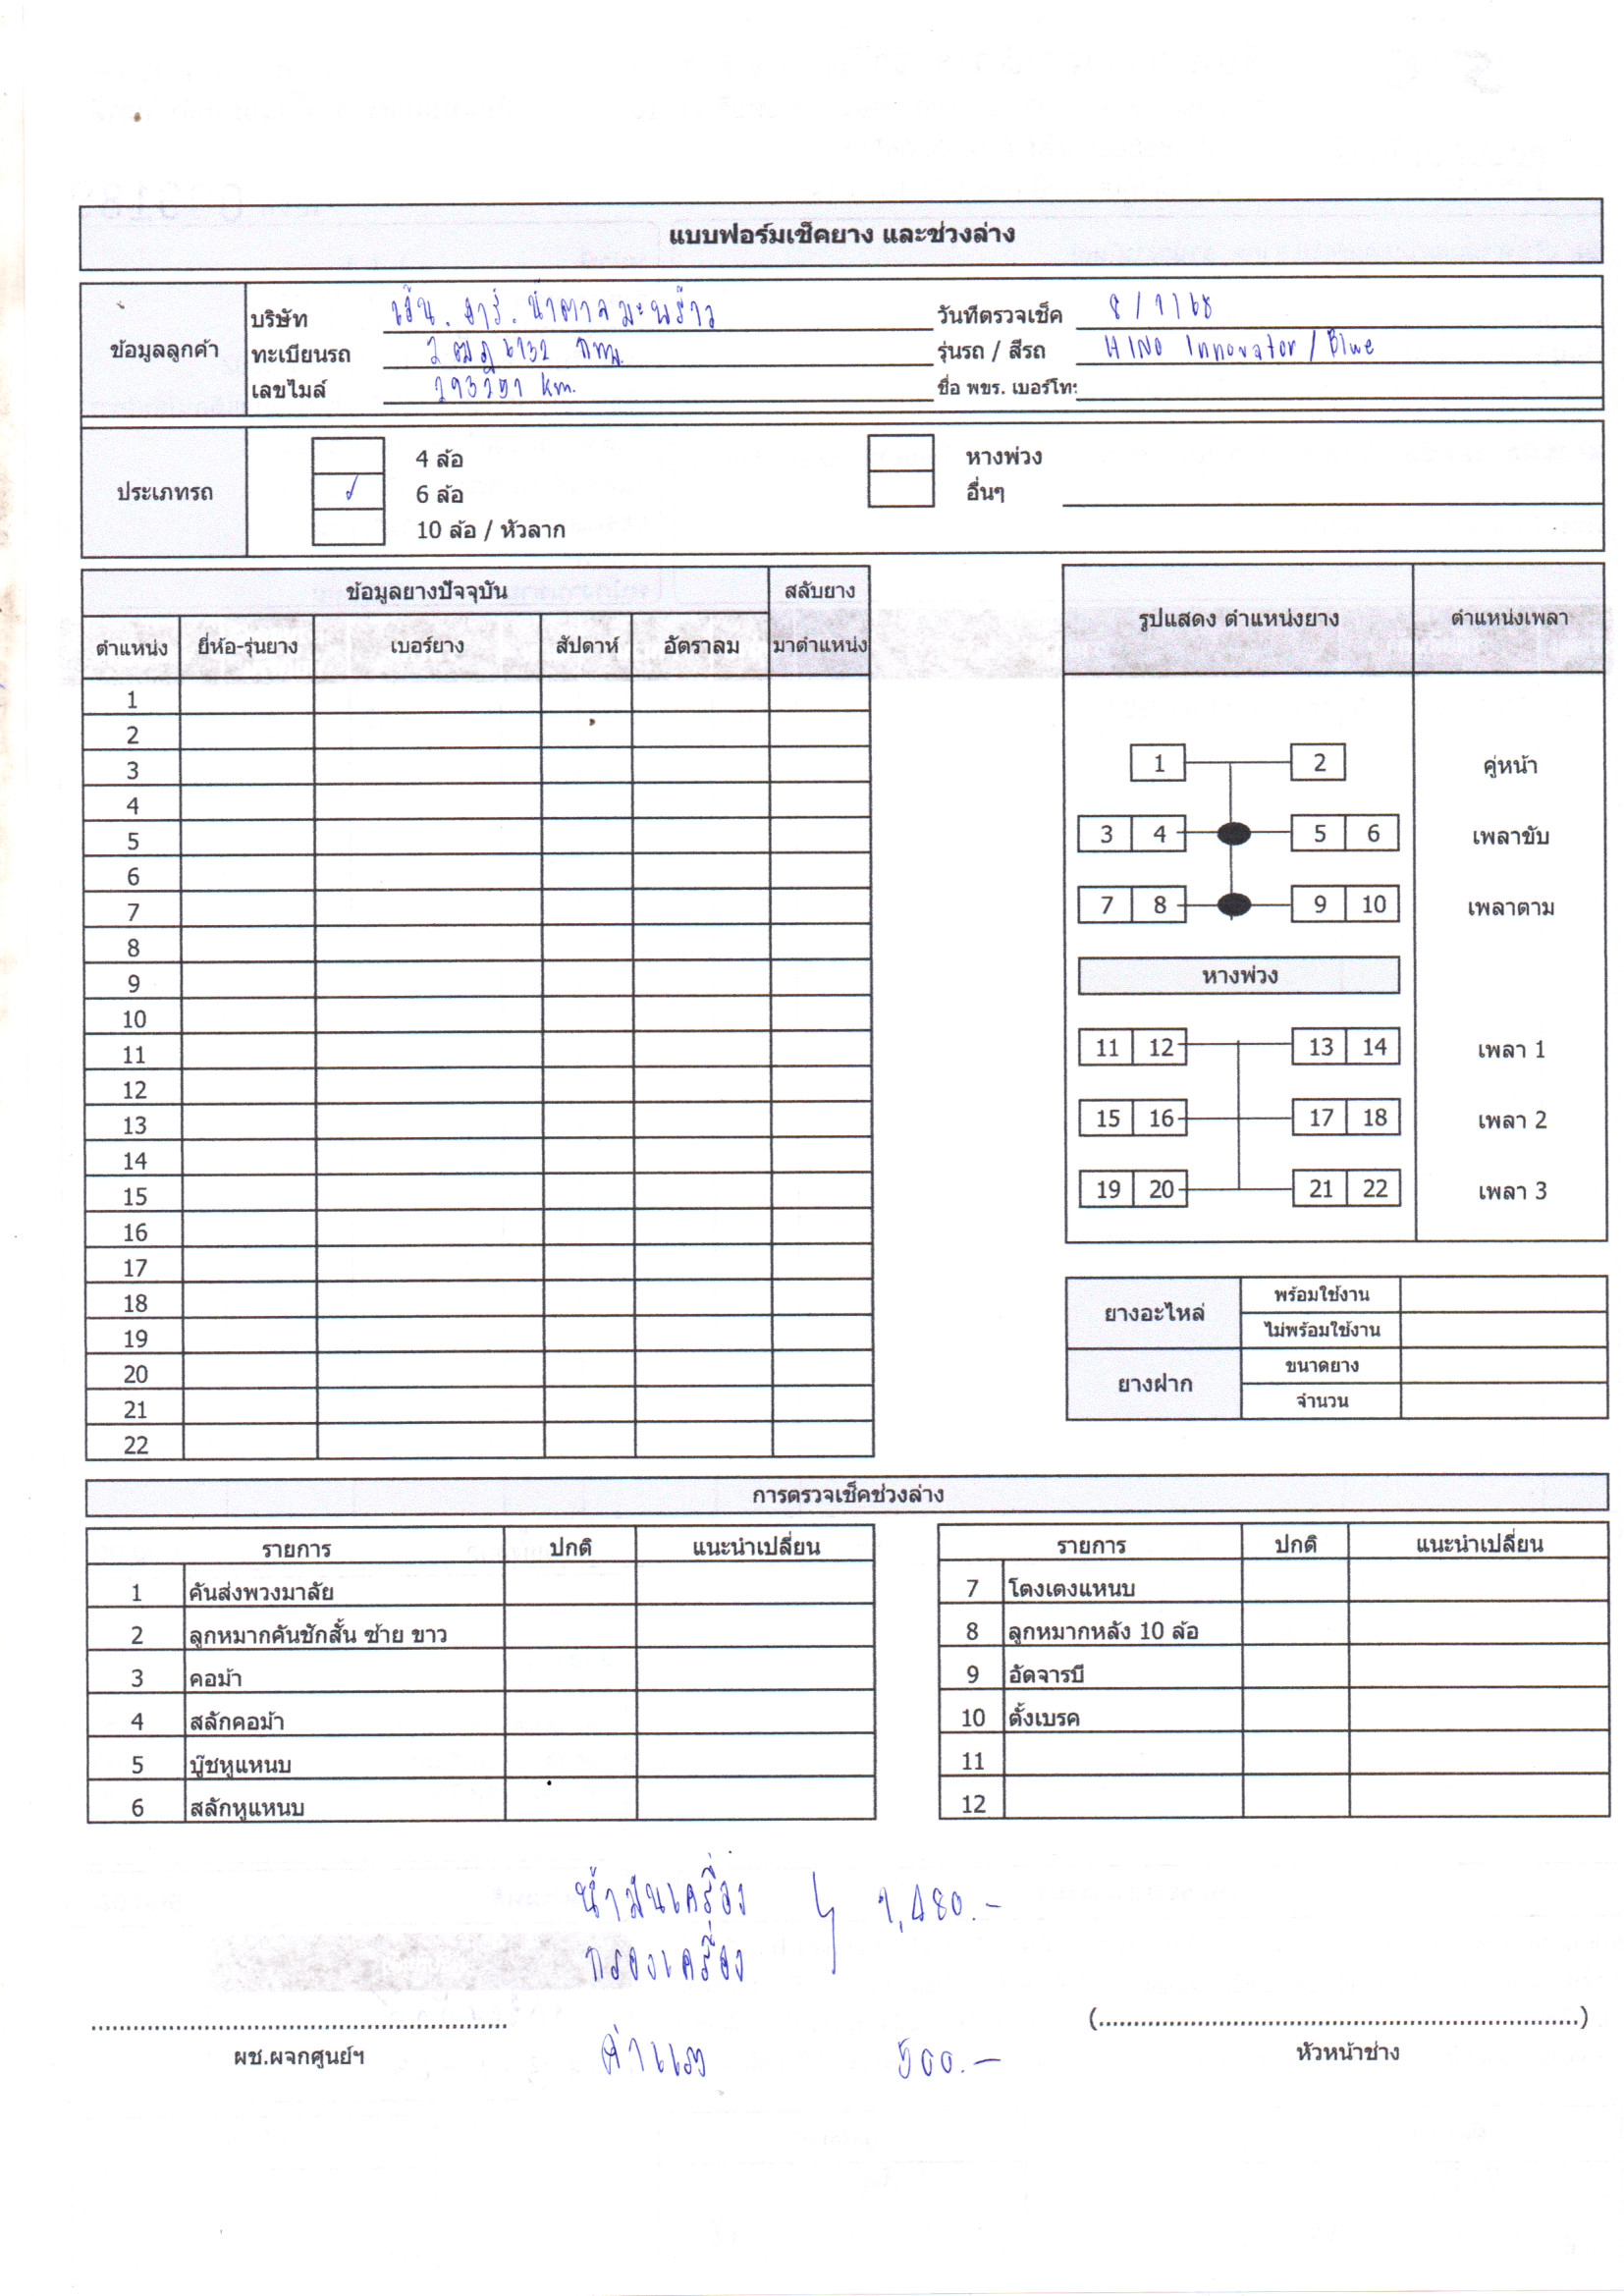 แบบฟอร์มเช็คยาง และช่วงล่าง
ข้อมูลลูกค้า
บริษัท เอ็น.อาร์.น้ำตาลมะพร้าว วันที่ตรวจเช็ค 8/1/68
ทะเบียนรถ กทม. รุ่นรถ / สีรถ HINO Innovator / Blue
เลขไมล์ 293251 km. ชื่อ พขร. เบอร์โท:
ประเภทรถ
4 ล้อ หางพ่วง
✓ 6 ล้อ อื่นๆ
10 ล้อ / หัวลาก
ข้อมูลยางปัจจุบัน สลับยาง
ตำแหน่ง ยี่ห้อ-รุ่นยาง เบอร์ยาง สัปดาห์ อัตราลม มาตำแหน่ง
1
2
3
4
5
6
7
8
9
10
11
12
13
14
15
16
17
18
19
20
21
22
รูปแสดง ตำแหน่งยาง ตำแหน่งเพลา
1 2 คู่หน้า
3 4 5 6 เพลาขับ
7 8 9 10 เพลาตาม
หางพ่วง
11 12 13 14 เพลา 1
15 16 17 18 เพลา 2
19 20 21 22 เพลา 3
ยางอะไหล่ พร้อมใช้งาน
ไม่พร้อมใช้งาน
ยางฝาก ขนาดยาง
จำนวน
การตรวจเช็คช่วงล่าง
รายการ ปกติ แนะนำเปลี่ยน
1 คันส่งพวงมาลัย
2 ลูกหมากคันชักสั้น ซ้าย ขาว
3 คอม้า
4 สลักคอม้า
5 บู๊ชหูแหนบ
6 สลักหูแหนบ
รายการ ปกติ แนะนำเปลี่ยน
7 โตงเตงแหนบ
8 ลูกหมากหลัง 10 ล้อ
9 อัดจารบี
10 ตั้งเบรค
11
12
น้ำมันเครื่อง 1,480.-
กรองเครื่อง
(..........)
ผช.ผจกศูนย์ฯ ค่าแรง 500.- หัวหน้าช่าง